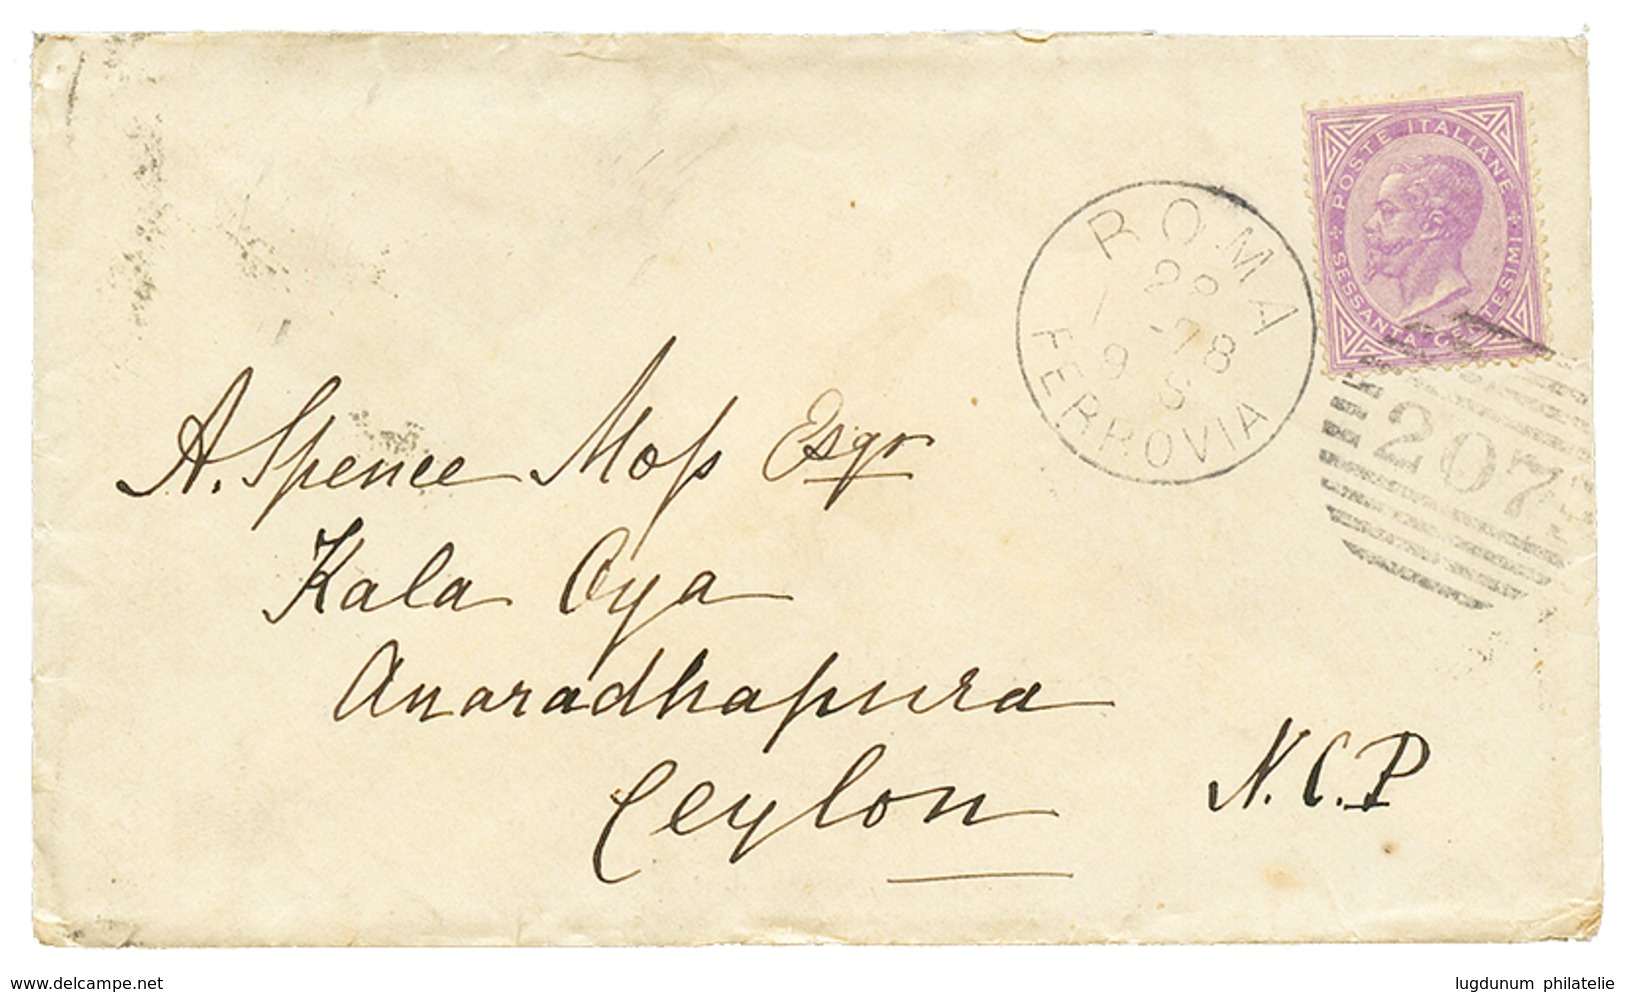 POSTE ITALIANE
SESSANTA CENTESIMI
ROMA
78
9 S
FERROVIA
207
A. Spence Moſs Esqr
Kala Oya
Anaradhapura
Ceylon
N.C.P
www.delcampe.net
lugdunum philatelie